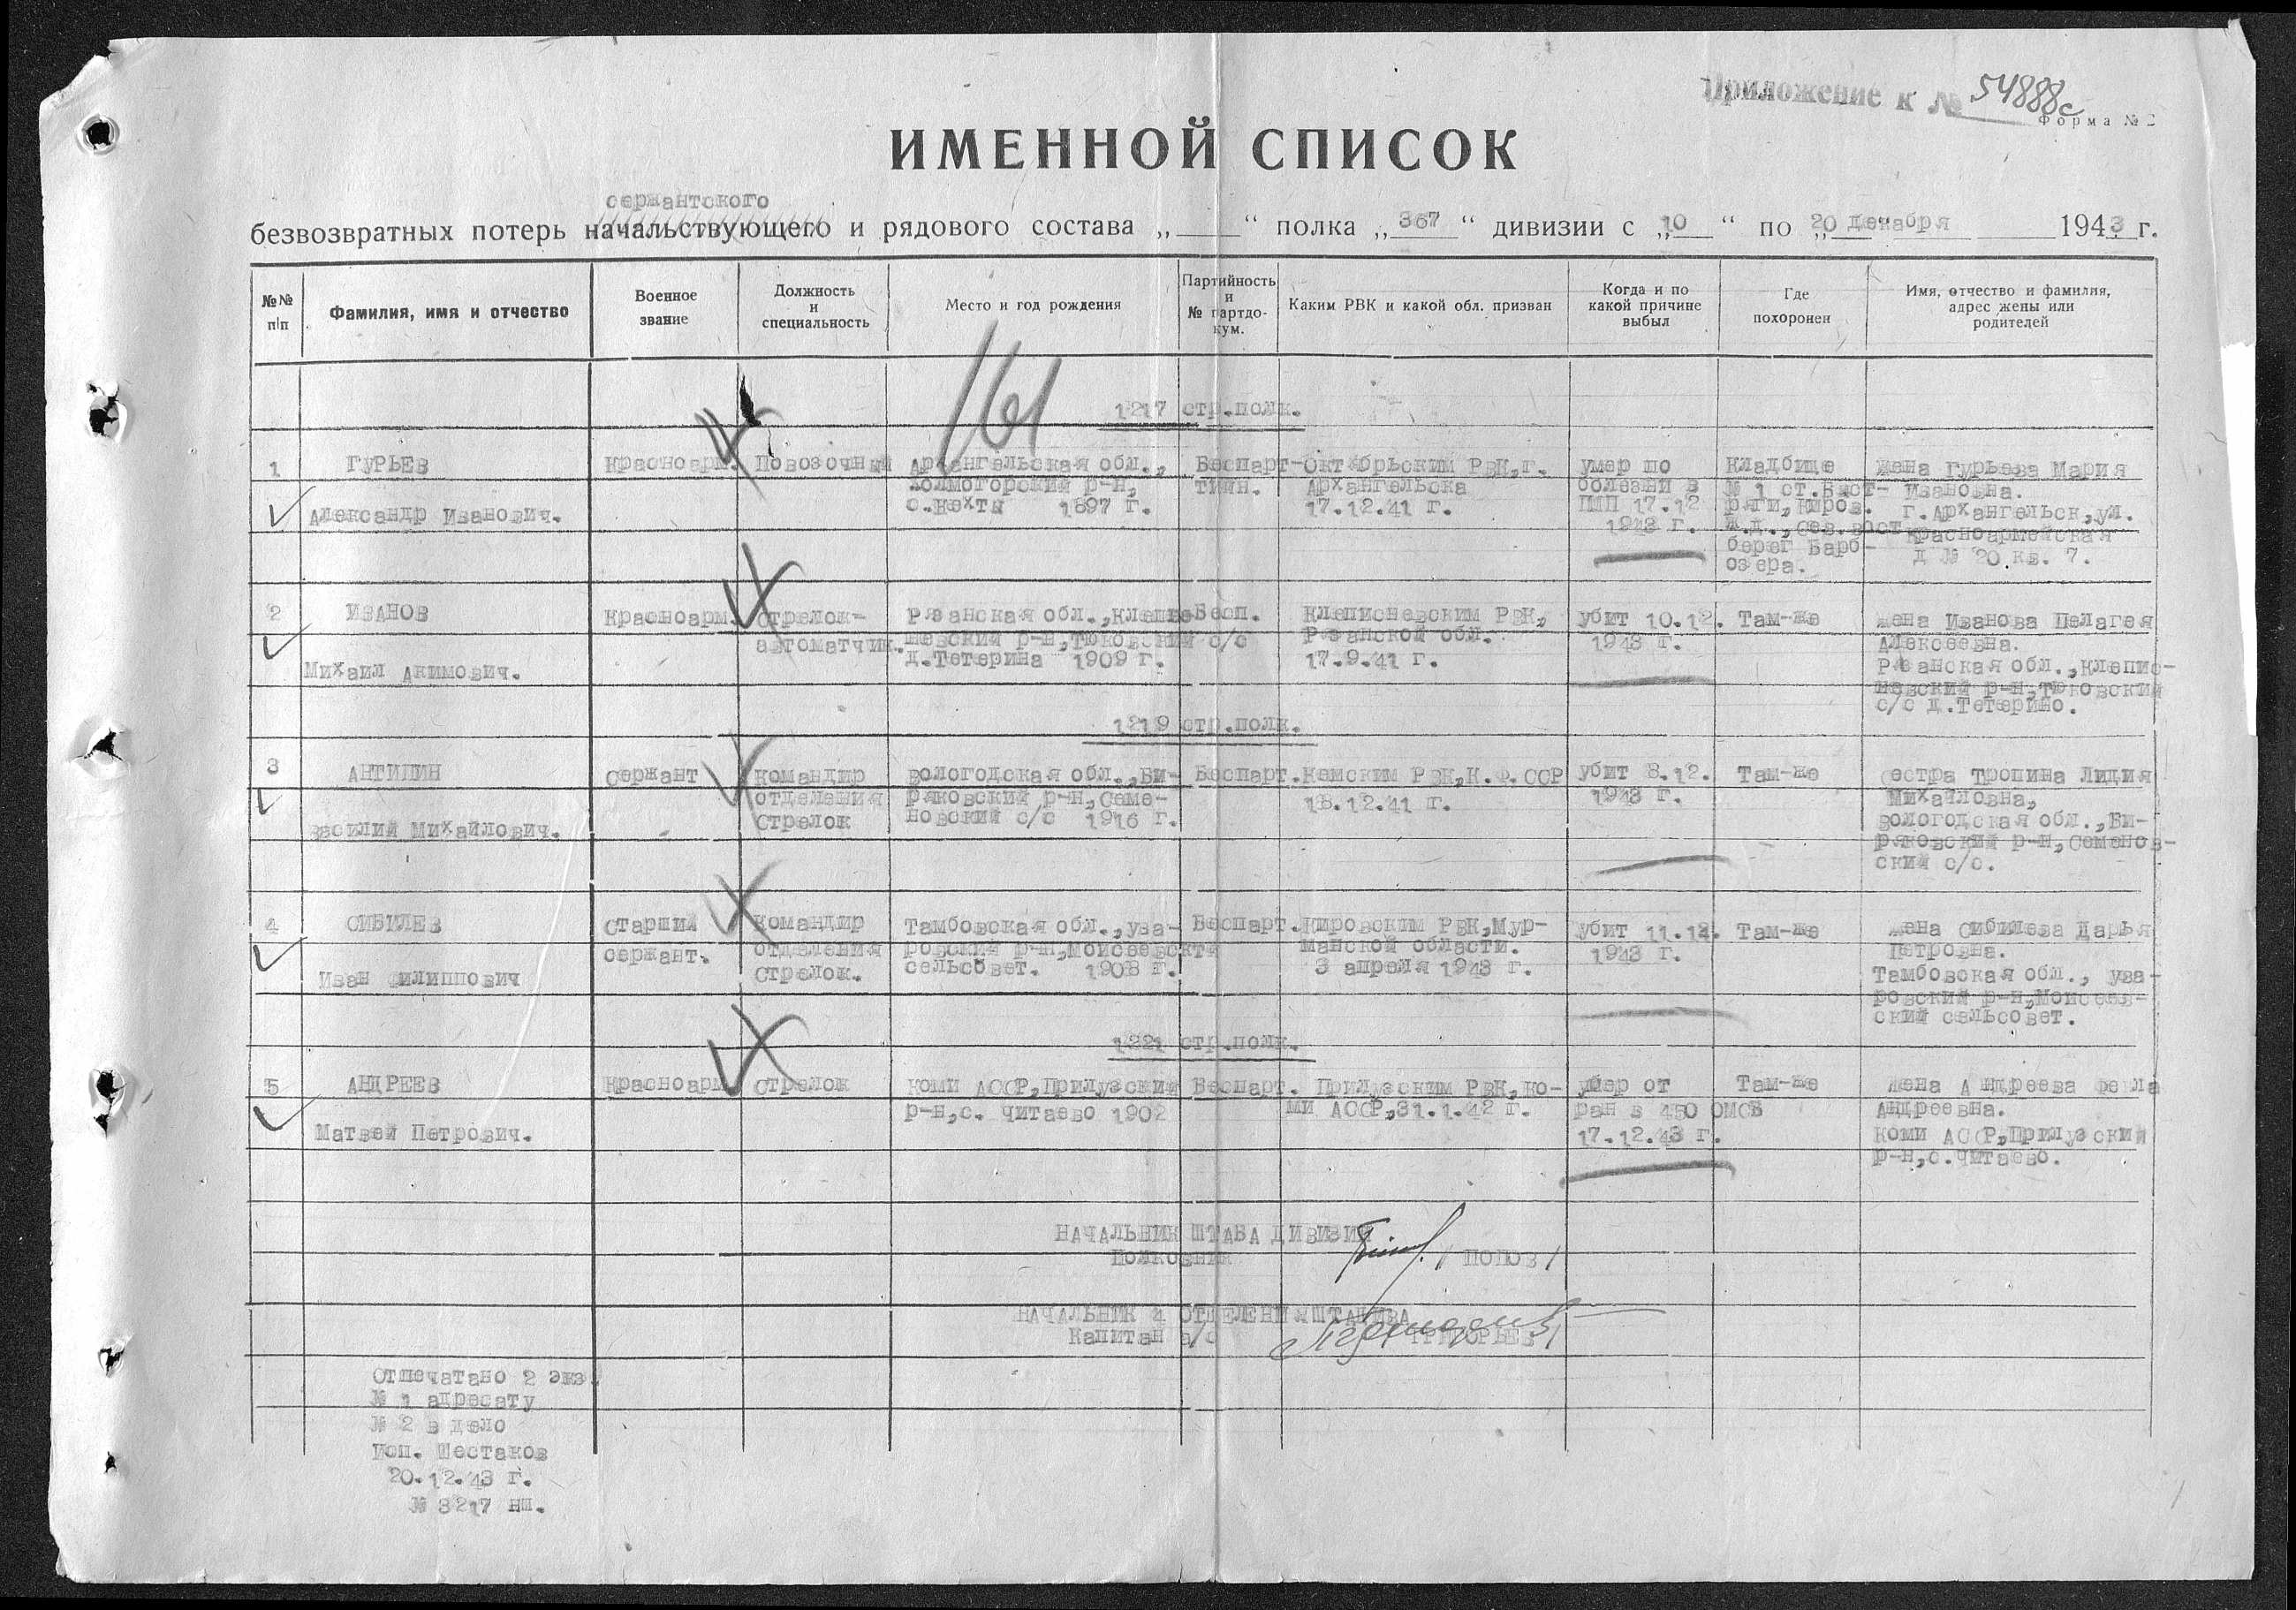 Приложение к № 54888с
Форма № 2
ИМЕННОЙ СПИСОК
сержантского
безвозвратных потерь начальствующего и рядового состава „ “ полка „367“ дивизии с „10“ по „20 декабря 1943 г.
№№ п/п
Фамилия, имя и отчество
Военное звание
Должность и специальность
Место и год рождения
Партийность и № партдокум.
Каким РВК и какой обл. призван
Когда и по какой причине выбыл
Где похоронен
Имя, отчество и фамилия, адрес жены или родителей
161
1217 стр.полк.
1
ГУРЬЕВ
Александр Иванович.
Красноарм.
Повозочный
Архангельская обл.,
Холмогорский р-н,
с.Кехты 1897 г.
Беспарт-
тийн.
Октябрьским РВК,г.
Архангельска
17.12.41 г.
умер по
болезни в
ПМП 17.12
1943 г.
Кладбище
№ 1 ст.Вяст-
ряги,Киров.
ж.д.,сев.вост
берег Барб-
озера.
Жена Гурьева Мария
Ивановна.
г.Архангельск,ул.
Красноармейская
д № 20 кв. 7.
2
ИВАНОВ
Михаил Акимович.
Красноарм.
Стрелок-
автоматчик.
Рязанская обл.,Клепи-
невский р-н,Тюковский с/с
д.Тетерина 1909 г.
Бесп.
Клепиневским РВК,
Рязанской обл.
17.9.41 г.
убит 10.12.
1943 г.
Там-же
Жена Иванова Пелагея
Алексеевна.
Рязанская обл.,Клепи-
невский р-н,Тюковский
с/с д.Тетерино.
1219 стр.полк.
3
АНТИПИН
Василий Михайлович.
Сержант
Командир
отделения
Стрелок
Вологодская обл.,Би-
ряковский р-н,Семе-
новский с/с 1916 г.
Беспарт.
Кемским РВК,К.Ф.ССР
18.12.41 г.
убит 8.12.
1943 г.
Там-же
Сестра Тропина Лидия
Михайловна,
Вологодская обл.,Би-
ряковский р-н,Семенов-
ский с/с.
4
СИБИЛЕВ
Иван Филиппович
Старший
сержант.
Командир
отделения
Стрелок.
Тамбовская обл.,Ува-
ровский р-н,Моисеевскти
сельсовет. 1908 г.
Беспарт.
Кировским РВК,Мур-
манской области.
3 апреля 1943 г.
убит 11.12.
1943 г.
Там-же
Жена Сибилева Дарья
Петровна.
Тамбовская обл., Ува-
ровский р-н,Моисеев-
ский сельсовет.
1221 стр.полк.
5
АНДРЕЕВ
Матвей Петрович.
Красноарм
Стрелок
Коми АССР,Прилузский
р-н,с. Читаево 1902
Беспарт.
Прилузским РВК,Ко-
ми АССР,31.1.42 г.
умер от
ран в 450 ОМСБ
17.12.43 г.
Там-же
Жена Андреева Фекла
Андреевна.
Коми АССР,Прилузский
р-н,с.Читаево.
НАЧАЛЬНИК ШТАБА ДИВИЗИИ
Полковник / ПОПОВ /
НАЧАЛЬНИК 4 ОТДЕЛЕНИЯ ШТАДИВА
Капитан а/с ГРИГОРЬЕВ/
Отпечатано 2 экз.
№ 1 адресату
№ 2 в дело
Исп. Шестаков
20.12.43 г.
№ 3217 нш.